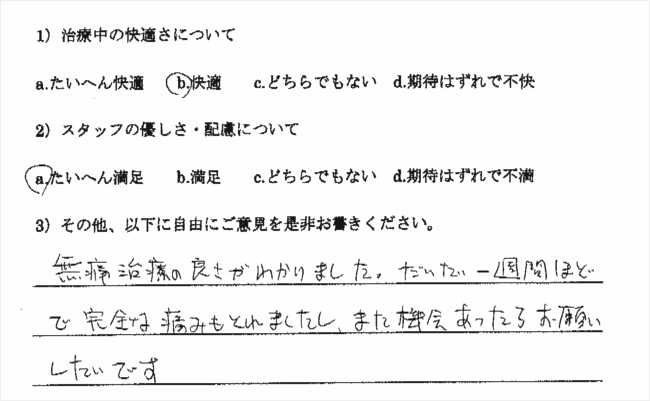 1) 治療中の快適さについて
a.たいへん快適 b.快適 c.どちらでもない d.期待はずれで不快
2) スタッフの優しさ・配慮について
a.たいへん満足 b.満足 c.どちらでもない d.期待はずれで不満
3) その他、以下に自由にご意見を是非お書きください。
無痛治療の良さがわかりました。だいたい一週間ほど
で完全な痛みもとれましたし、また機会あったらお願い
したいです